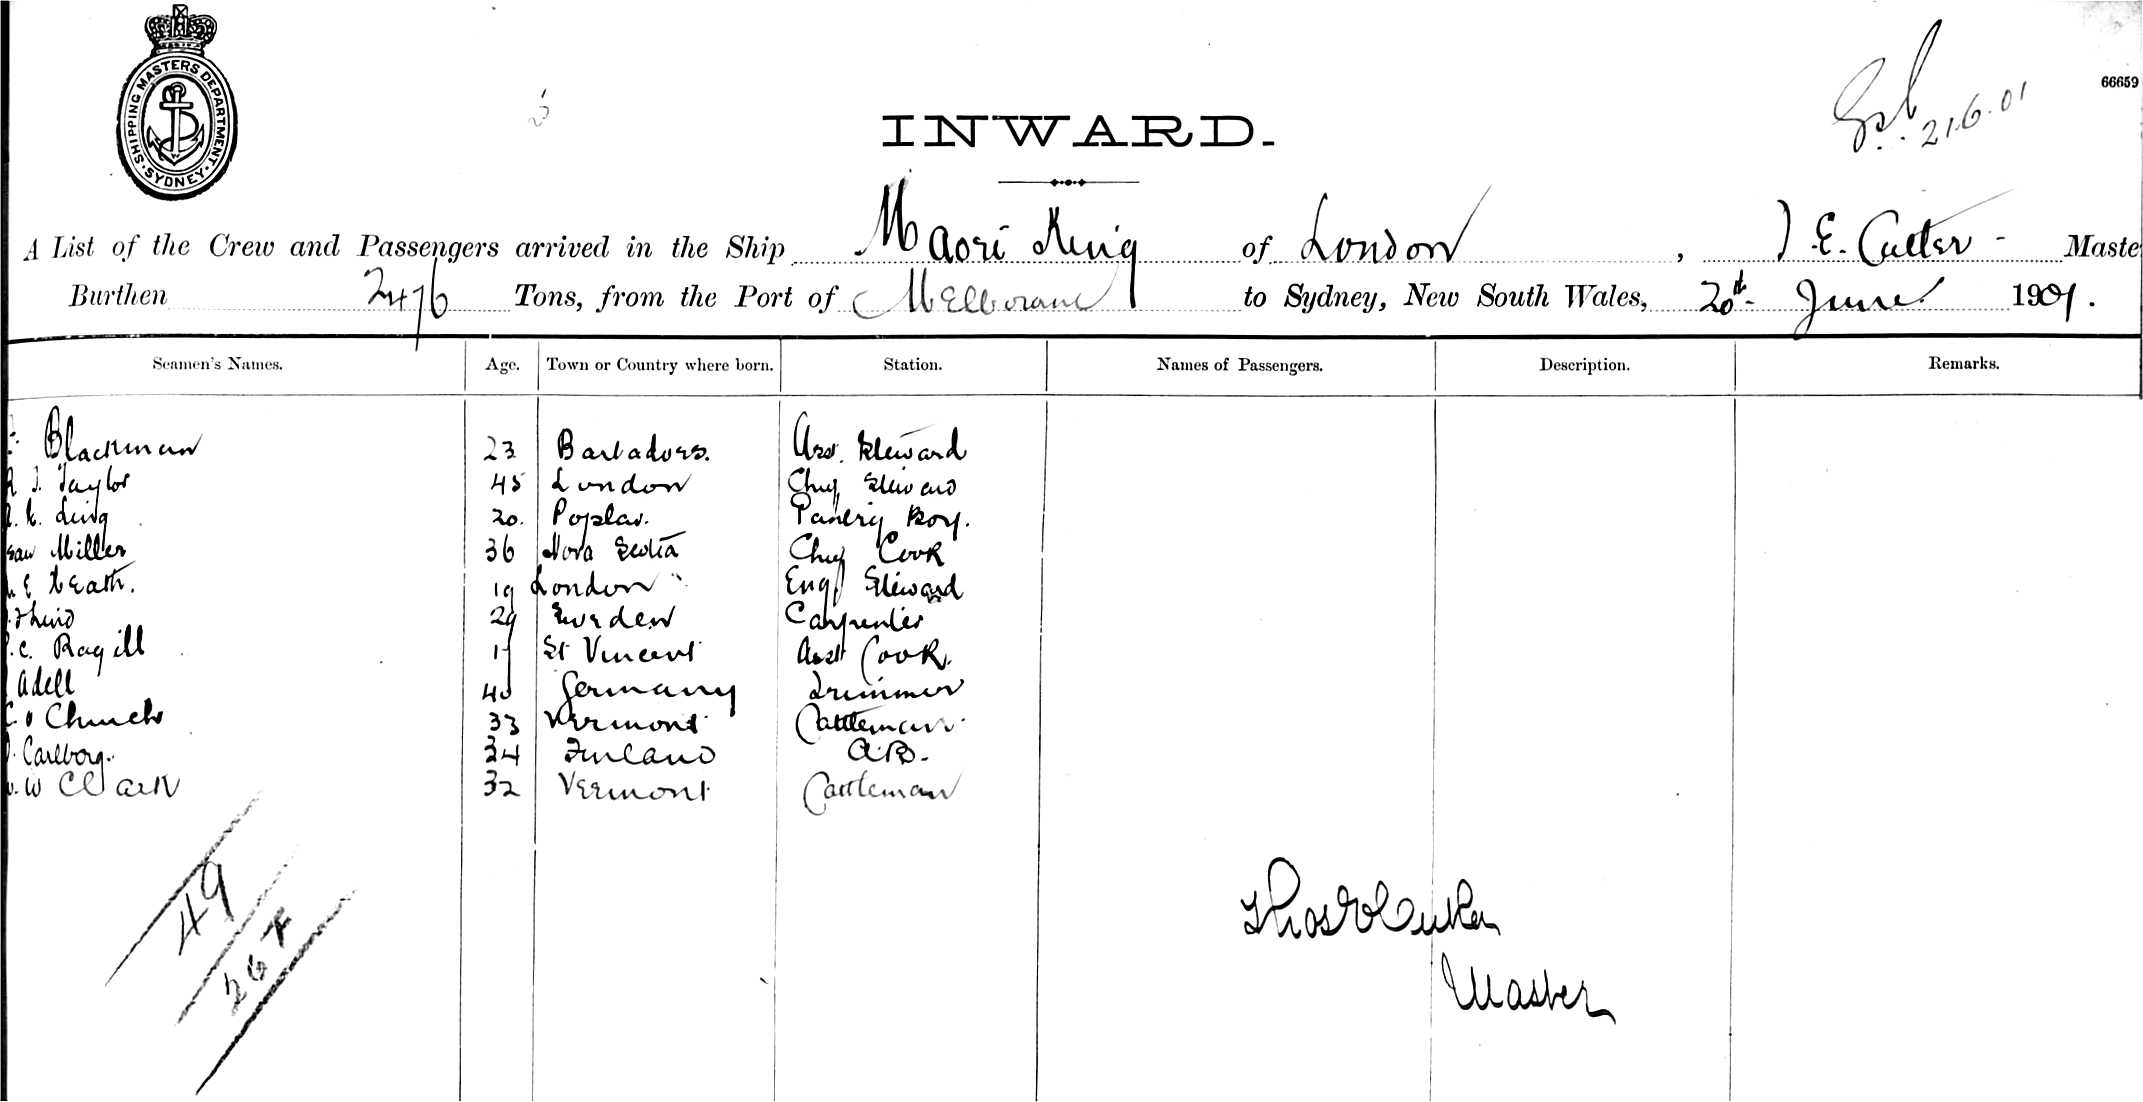 SHIPPING MASTERS DEPARTMENT
SYDNEY
66659
21.6.01
INWARD.
A List of the Crew and Passengers arrived in the Ship Maori King of London, T. E. Cutter - Maste
Burthen 2476 Tons, from the Port of Melbourne to Sydney, New South Wales, 20th June 1901.
Seamen's Names. Age. Town or Country where born. Station. Names of Passengers. Description. Remarks.
Blackman 23 Barbadoes. Ass. Steward
J. Taylor 45 London Chief Steward
Ling 20. Poplar. Pantry Boy.
Miller 36 Nova Scotia Chief Cook
E Heath. 19 London Eng Steward
29 Sweden Carpenter
C. Ragill St Vincent Asst Cook.
Adell 40 Germany Trimmer
Church 33 Vermont Cattleman
Carlborg. 34 Finland A.B.
W Clark 32 Vermont Cattleman
49
26
Thos
Master